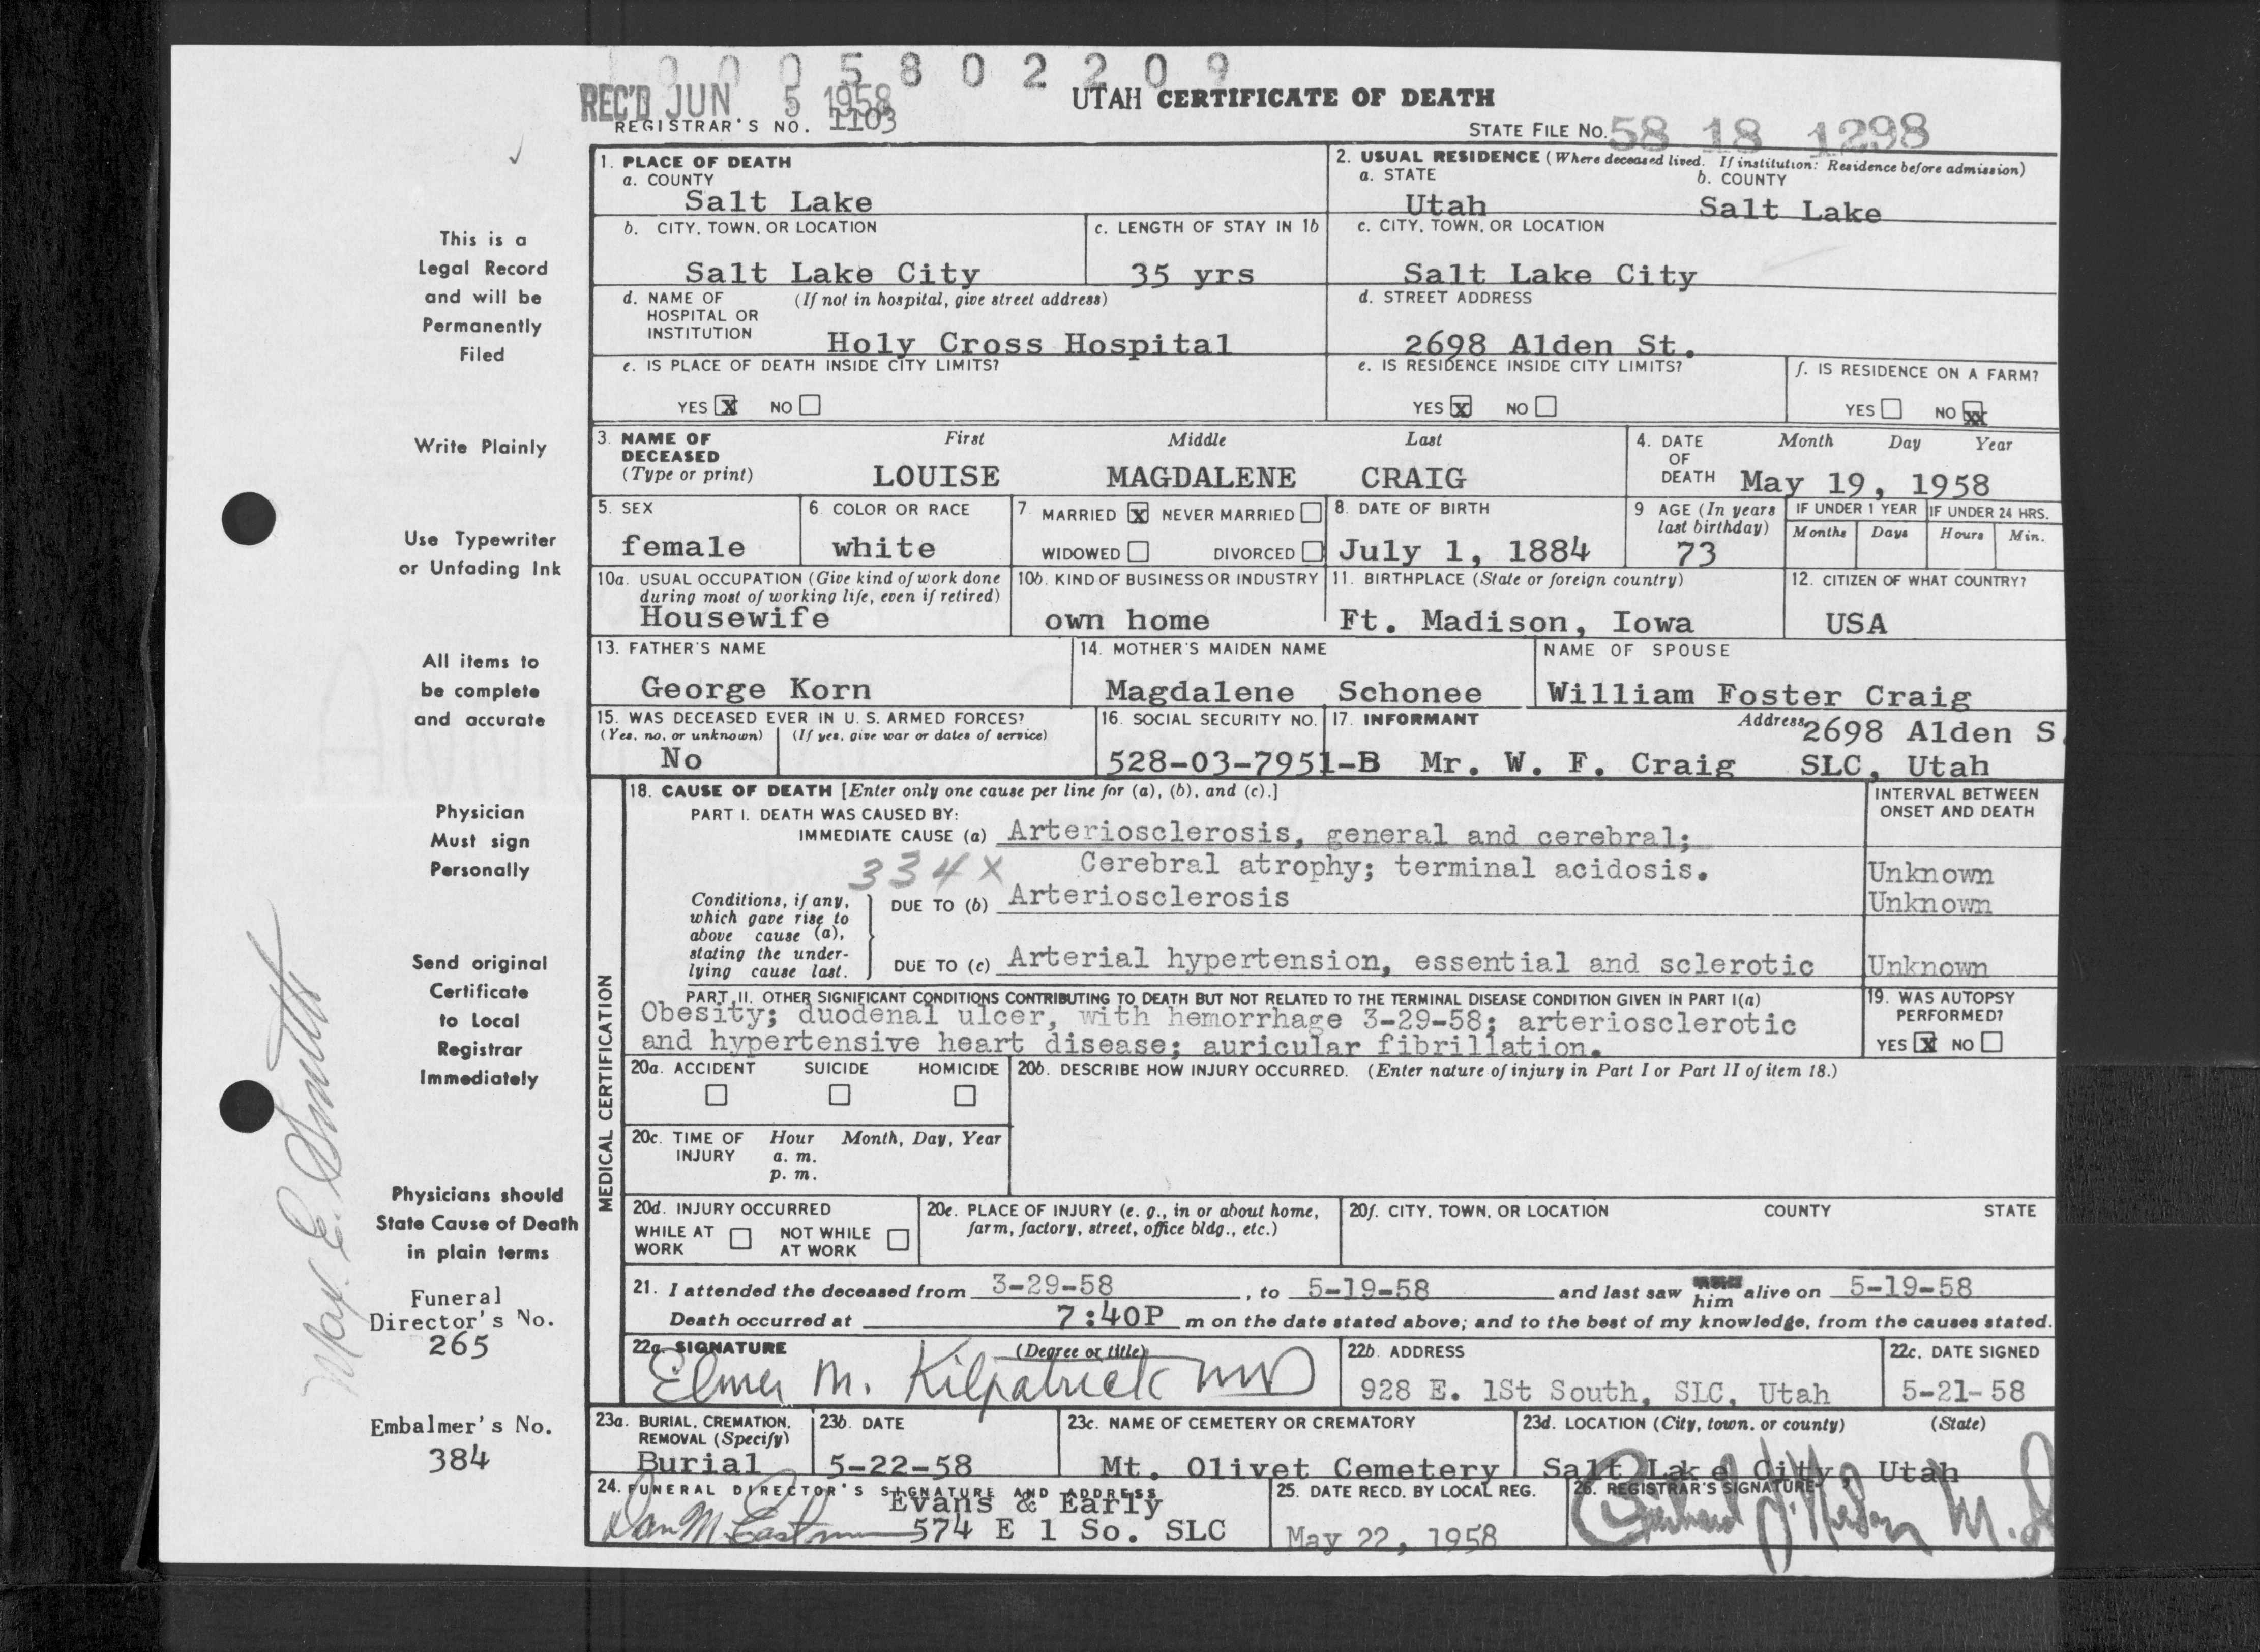 0005802209
REC'D JUN 5 1958
UTAH CERTIFICATE OF DEATH
REGISTRAR'S NO. 1103
STATE FILE NO. 58 18 1298
1. PLACE OF DEATH
a. COUNTY
Salt Lake
2. USUAL RESIDENCE (Where deceased lived. If institution: Residence before admission)
a. STATE b. COUNTY
Utah Salt Lake
b. CITY, TOWN, OR LOCATION
Salt Lake City
c. LENGTH OF STAY IN 1b
35 yrs
c. CITY, TOWN, OR LOCATION
Salt Lake City
d. NAME OF HOSPITAL OR INSTITUTION (If not in hospital, give street address)
Holy Cross Hospital
d. STREET ADDRESS
2698 Alden St.
e. IS PLACE OF DEATH INSIDE CITY LIMITS?
YES X NO
e. IS RESIDENCE INSIDE CITY LIMITS?
YES X NO
f. IS RESIDENCE ON A FARM?
YES NO XX
3. NAME OF DECEASED (Type or print)
First Middle Last
LOUISE MAGDALENE CRAIG
4. DATE OF DEATH
Month Day Year
May 19, 1958
5. SEX
female
6. COLOR OR RACE
white
7. MARRIED X NEVER MARRIED
WIDOWED DIVORCED
8. DATE OF BIRTH
July 1, 1884
9 AGE (In years last birthday)
73
IF UNDER 1 YEAR
Months Days
IF UNDER 24 HRS.
Hours Min.
10a. USUAL OCCUPATION (Give kind of work done during most of working life, even if retired)
Housewife
10b. KIND OF BUSINESS OR INDUSTRY
own home
11. BIRTHPLACE (State or foreign country)
Ft. Madison, Iowa
12. CITIZEN OF WHAT COUNTRY?
USA
13. FATHER'S NAME
George Korn
14. MOTHER'S MAIDEN NAME
Magdalene Schonee
NAME OF SPOUSE
William Foster Craig
15. WAS DECEASED EVER IN U. S. ARMED FORCES?
(Yes, no, or unknown) (If yes, give war or dates of service)
No
16. SOCIAL SECURITY NO.
528-03-7951-B
17. INFORMANT
Mr. W. F. Craig
Address 2698 Alden S
SLC, Utah
MEDICAL CERTIFICATION
18. CAUSE OF DEATH [Enter only one cause per line for (a), (b), and (c).]
INTERVAL BETWEEN ONSET AND DEATH
PART I. DEATH WAS CAUSED BY:
IMMEDIATE CAUSE (a) Arteriosclerosis, general and cerebral;
334X
Cerebral atrophy; terminal acidosis. Unknown
Conditions, if any, which gave rise to above cause (a), stating the underlying cause last.
DUE TO (b) Arteriosclerosis Unknown
DUE TO (c) Arterial hypertension, essential and sclerotic Unknown
PART II. OTHER SIGNIFICANT CONDITIONS CONTRIBUTING TO DEATH BUT NOT RELATED TO THE TERMINAL DISEASE CONDITION GIVEN IN PART I(a)
Obesity; duodenal ulcer, with hemorrhage 3-29-58; arteriosclerotic
and hypertensive heart disease; auricular fibrillation.
19. WAS AUTOPSY PERFORMED?
YES X NO
20a. ACCIDENT SUICIDE HOMICIDE
20b. DESCRIBE HOW INJURY OCCURRED. (Enter nature of injury in Part I or Part II of item 18.)
20c. TIME OF INJURY
Hour Month, Day, Year
a. m.
p. m.
20d. INJURY OCCURRED
WHILE AT WORK NOT WHILE AT WORK
20e. PLACE OF INJURY (e. g., in or about home, farm, factory, street, office bldg., etc.)
20f. CITY, TOWN, OR LOCATION COUNTY STATE
21. I attended the deceased from 3-29-58, to 5-19-58 and last saw him alive on 5-19-58
Death occurred at 7:40P m on the date stated above; and to the best of my knowledge, from the causes stated.
22a. SIGNATURE (Degree or title)
Elmer M. Kilpatrick MD
22b. ADDRESS
928 E. 1St South, SLC, Utah
22c. DATE SIGNED
5-21-58
23a. BURIAL, CREMATION, REMOVAL (Specify)
Burial
23b. DATE
5-22-58
23c. NAME OF CEMETERY OR CREMATORY
Mt. Olivet Cemetery
23d. LOCATION (City, town, or county) (State)
Salt Lake City, Utah
24. FUNERAL DIRECTOR'S SIGNATURE AND ADDRESS
Evans & Early
574 E 1 So. SLC
25. DATE RECD. BY LOCAL REG.
May 22, 1958
26. REGISTRAR'S SIGNATURE
This is a
Legal Record
and will be
Permanently
Filed
Write Plainly
Use Typewriter
or Unfading Ink
All items to
be complete
and accurate
Physician
Must sign
Personally
Send original
Certificate
to Local
Registrar
Immediately
Physicians should
State Cause of Death
in plain terms
Funeral
Director's No.
265
Embalmer's No.
384
E. Smith